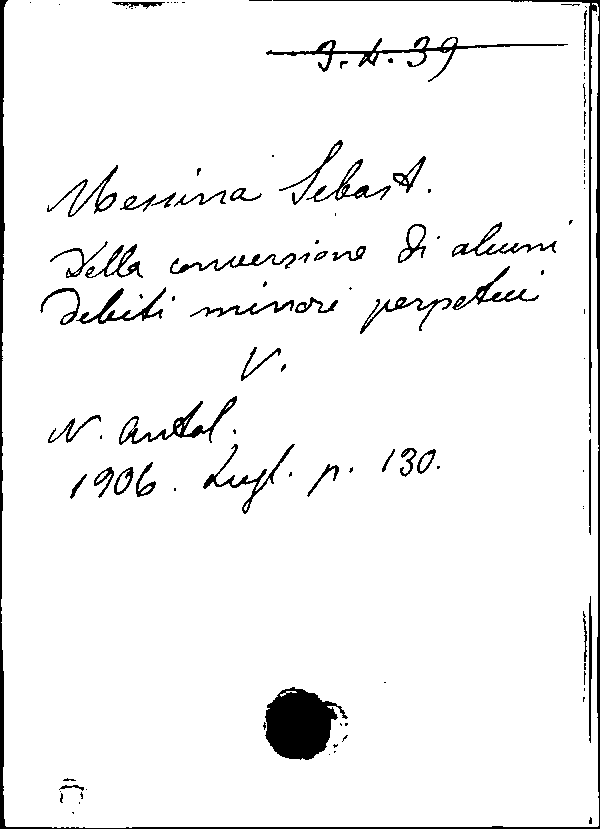 3.4.39
Messina Sebast.
Della conversione di alcuni
debiti minori perpetui
V.
N. Antol.
1906. Lugl. p. 130.